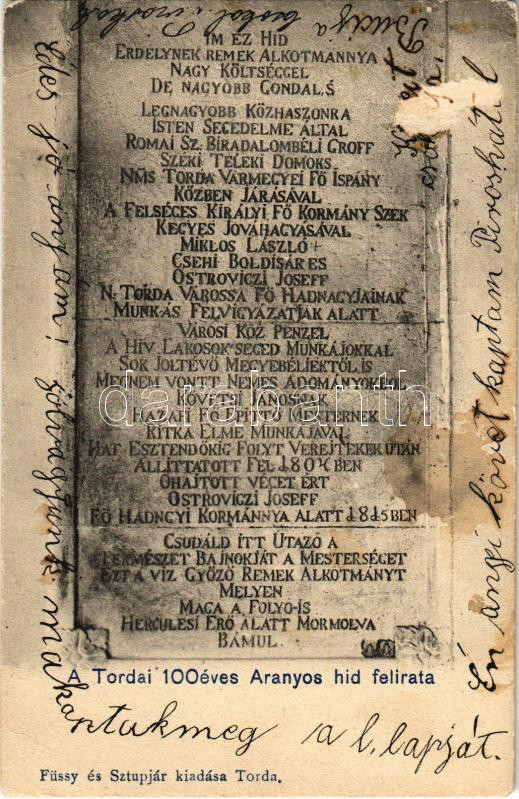 IM EZ HID
ERDELYNEK REMEK ALKOTMANNYA
NAGY KÖLTSÉGGEL
DE NAGYOBB GONDAL,S
LEGNAGYOBB KÖZHASZONRA
ISTEN SEGEDELME ÁLTAL
ROMAI SZ. BIRADALOMBÉLI GROFF
SZÉKI TELEKI DOMOKS
NMS TORDA VARMEGYEI FÖ ISPÁNY
KÖZBEN JÁRÁSÁVAL
A FELSÉGES KIRÁLYI FÖ KORMÁNY SZEK
KEGYES JOVAHAGYÁSÁVAL
MIKLOS LÁSZLÓ
CSEHI BOLDISÁR ES
OSTROVICZI JOSEFF
N. TORDA VÁROSSA FÖ HADNAGYJAINAK
MUNKÁS FELVIGYÁZATJAK ALATT
VÁROSI KÖZ PENZEL
A HIV LAKOSOK SEGED MUNKÁJOKKAL
SOK JOLTÉVÖ MEGYEBÉLIEKTÖL IS
MEGNEM VONTT NEMES ADOMÁNYOKBOL
KÖVETSI JÁNOSNAK
HAZAFI FÖ ÉPITTÖ MESTERNEK
RITKA ELME MUNKÁJÁVAL
HAT ESZTENDÖKIG FOLYT VEREJTEKEK UTÁN
ÁLLITTATOTT FEL BEN
OHAJTOTT VÉGET ÉRT
OSTROVICZI JOSEFF
FÖ HADNGYI KORMÁNNYA ALATT 1815 BEN
CSUDÁLD ITT UTAZO A
TERMÉSZET BAJNOKJÁT A MESTERSÉGET
EZT A VIZ GYÖZÖ REMEK ALKOTMÁNYT
MELYEN
MAGA A FOLYO-IS
HERCULESI ERÖ ALATT MORMOLVA
BÁMUL.
A Tordai 100éves Aranyos hid felirata
Füssy és Sztupjár kiadása Torda.
Édes jó anyám! ma
kaptukmeg a l. lapját.
Én ángyi követ kaptam Piroskától
darabanth